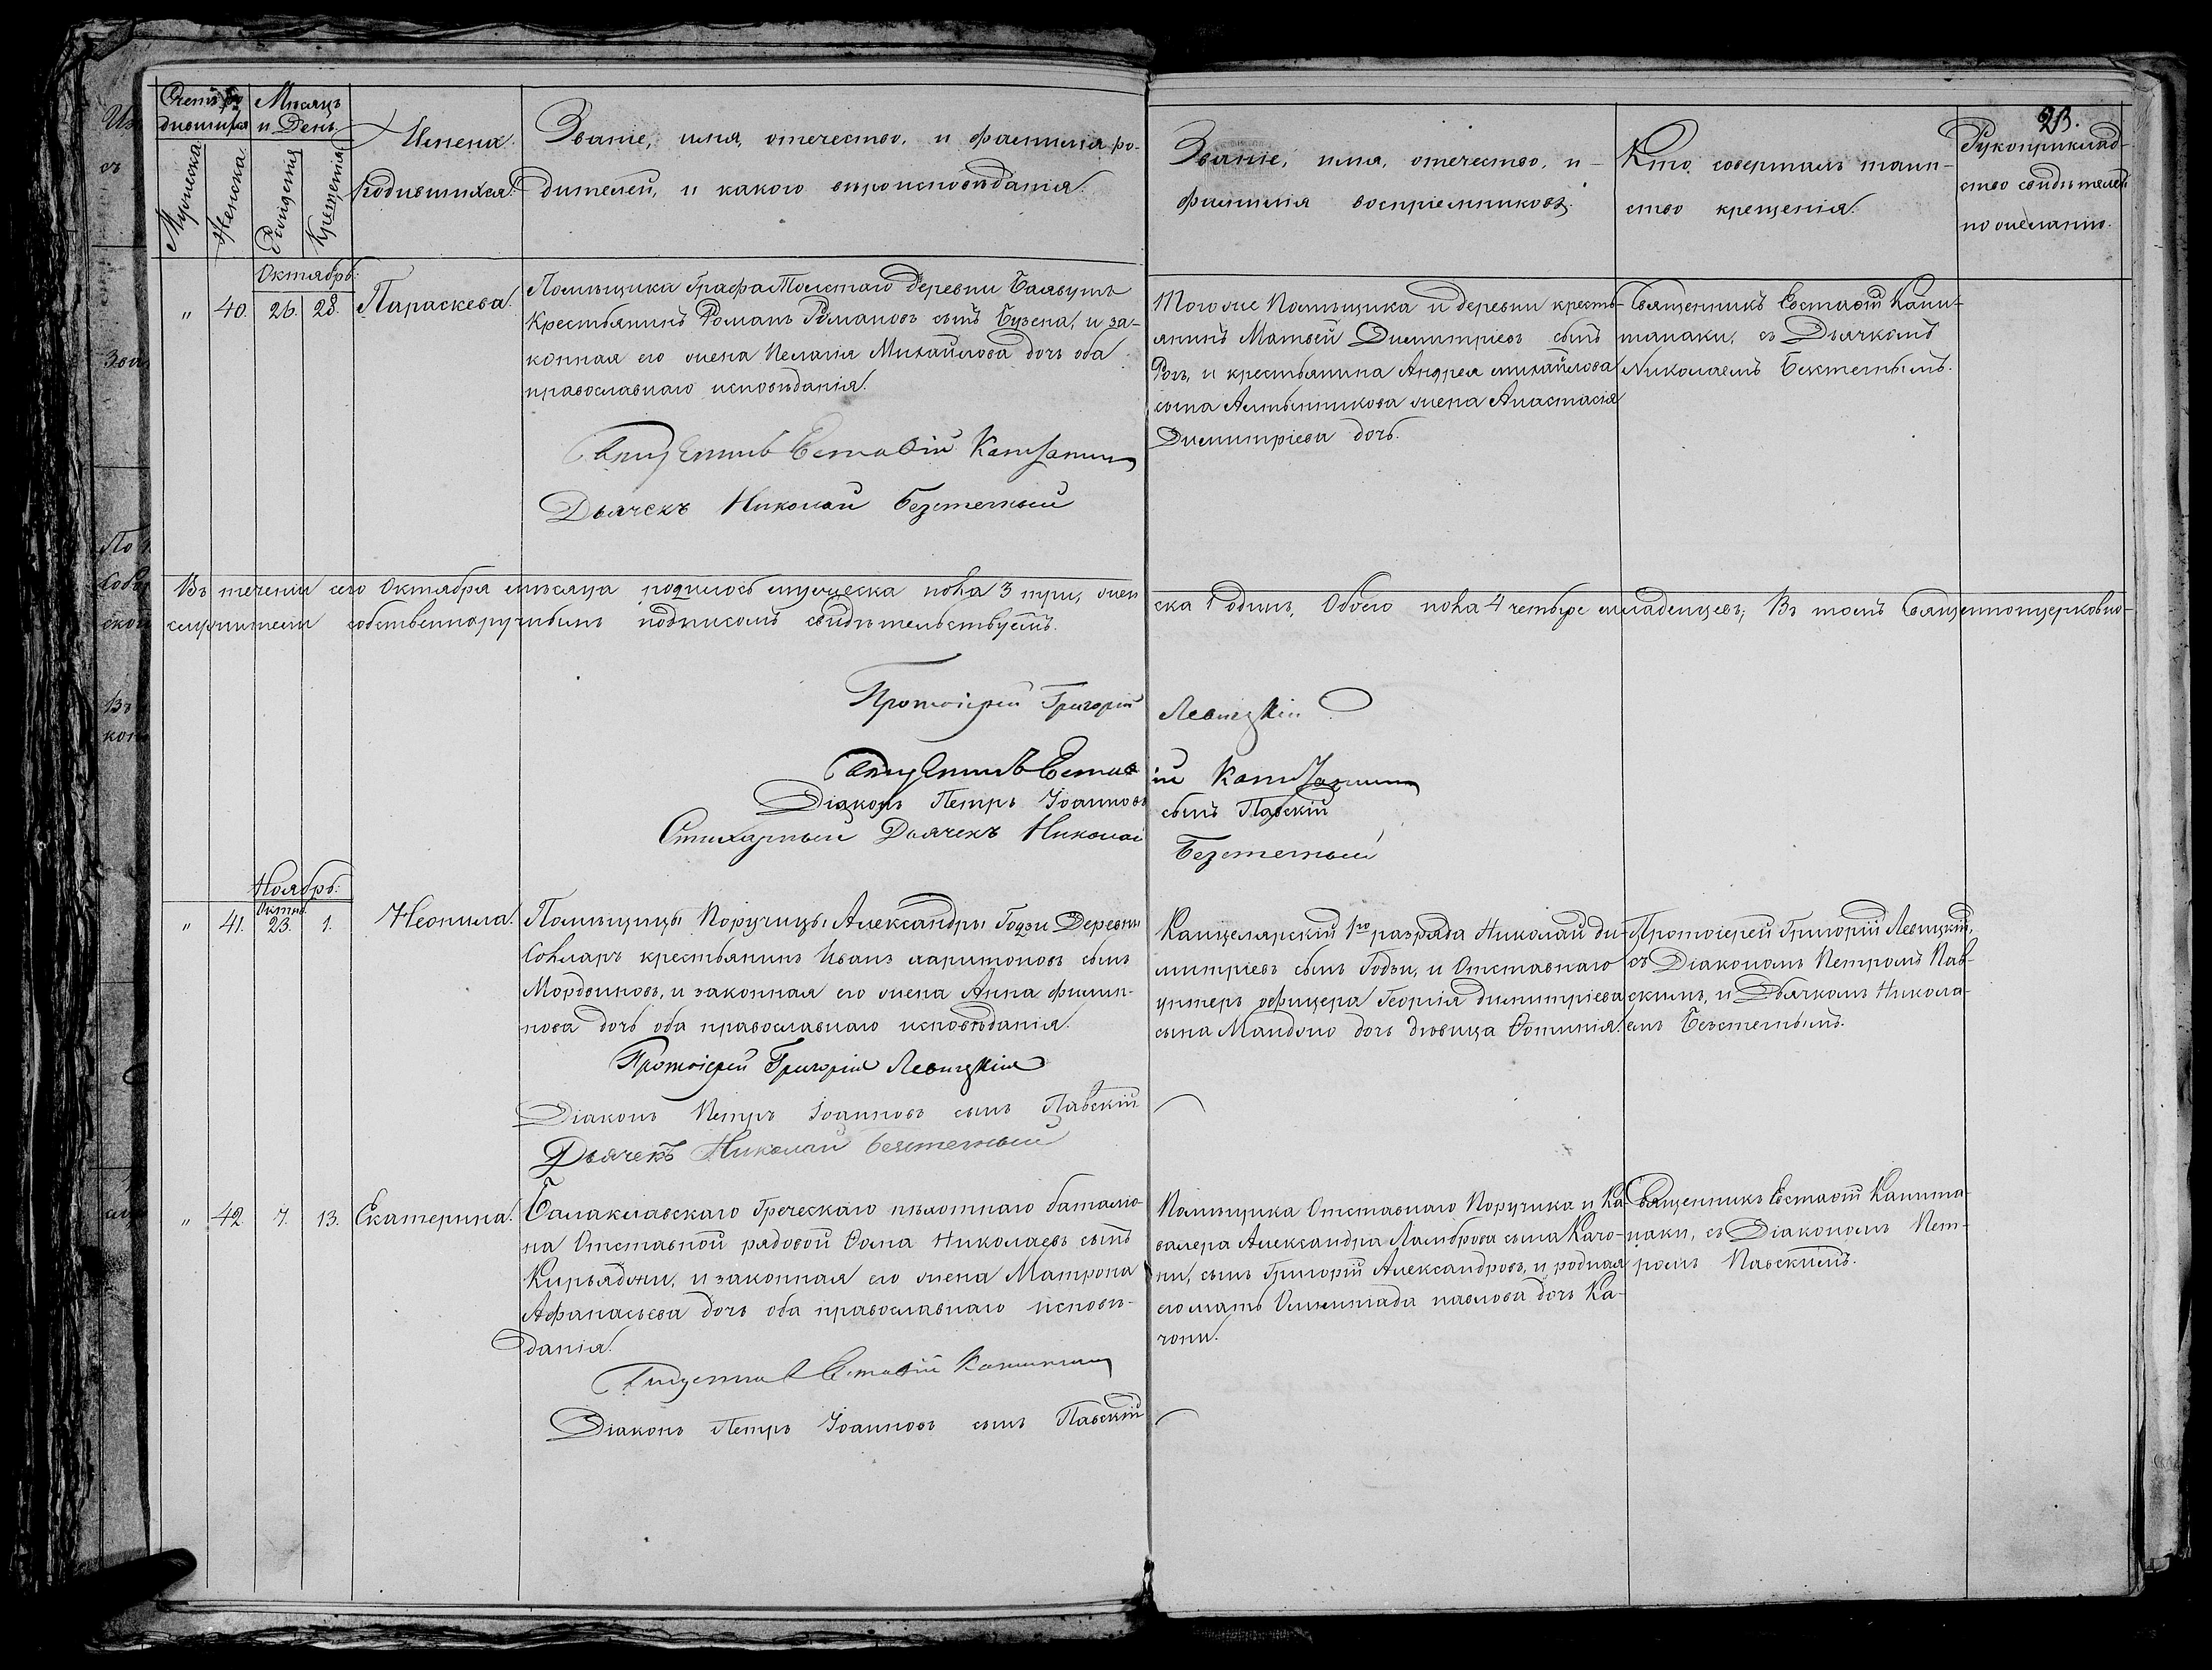 23.
Счетъ ро
дившихся
Мѣсяцъ
и День.
Мужеска.
Женска.
Рожденія
Крещенія
Имена
родившихся.
Званіе, имя, отечество, и фамилія ро-
дителей, и какого вѣроисповѣданія.
Званіе, имя, отечество, и
фамилія воспріемниковъ.
Кто совершалъ таин-
ство крещенія.
Рукоприклад-
ство свидѣтелей
по желанію.
Октябрь.
" 40. 26. 28. Параскева.
Помѣщика Графа Толстаго Деревни
Крестьянинъ Романъ Романовъ сынъ Бузена, и за-
конная его жена Пелагія Михайлова дочь оба
православнаго исповѣданія.
Священникъ Евстафій
Дьячекъ Николай Безстетный
Того же Помѣщика и деревни кресть-
янинъ Матвей Димитріевъ сынъ
и крестьянина Андрея михайлова
сына жена Анастасія
Димитріева дочь.
Священникъ Евстафій Капи-
танаки, съ Дьячкомъ
Николаемъ
Въ теченіи сего Октября мѣсяца родилось мужеска пола 3 три, жен
ска 1 одинъ, Обоего пола 4 четыре младенцевъ; Въ томъ Священноцерковно-
служители собственноручнымъ подписомъ свидѣтельствуемъ.
Протоіерей Григорій Левицкій
Священникъ Евстафій
Діаконъ Петръ Іоанновъ сынъ Павскій
Стихарный Дьячекъ Николай Безстетный
Ноябрь:
Октяб.
" 41. 23. 1. Неонила.
Помѣщицы Поручицы Александры Годзи Деревни
крестьянинъ Иванъ харитоновъ сынъ
Мордвиновъ, и законная его жена Анна филип-
пова дочь оба православнаго исповѣданія.
Протоіерей Григорій Левицкій
Діаконъ Петръ Іоанновъ сынъ Павскій
Дьячекъ Николай безстетный
Канцелярскій 1го разряда Николай ди-
митріевъ сынъ Годзи, и Отставнаго
унтеръ офицера Георгія димитріева
сына дочь дѣвица Фотинія.
Протоіерей Григорій Левицкій,
съ Діакономъ Петромъ Пав-
скимъ, и Дьячкомъ Никола-
емъ Безстетнымъ.
" 42. 7. 13. Екатерина.
Балаклавскаго Греческаго пѣхотнаго баталіо-
на Отставной рядовой Фома Николаевъ сынъ
Кирьяджи, и законная его жена Матрона
Афанасьева дочь оба православнаго исповѣ-
данія.
Священникъ Евстафій
Діаконъ Петръ Іоанновъ сынъ Павскій
Помѣщика Отставнаго Поручика и Ка-
валера Александра Ламброва сына Качо-
ни, сынъ Григорій Александровъ, и родная
его мать Олимпіада павлова дочь Ка-
чони.
Священникъ Евстафій Капита-
наки, съ Діакономъ Пет-
ромъ Павскимъ.